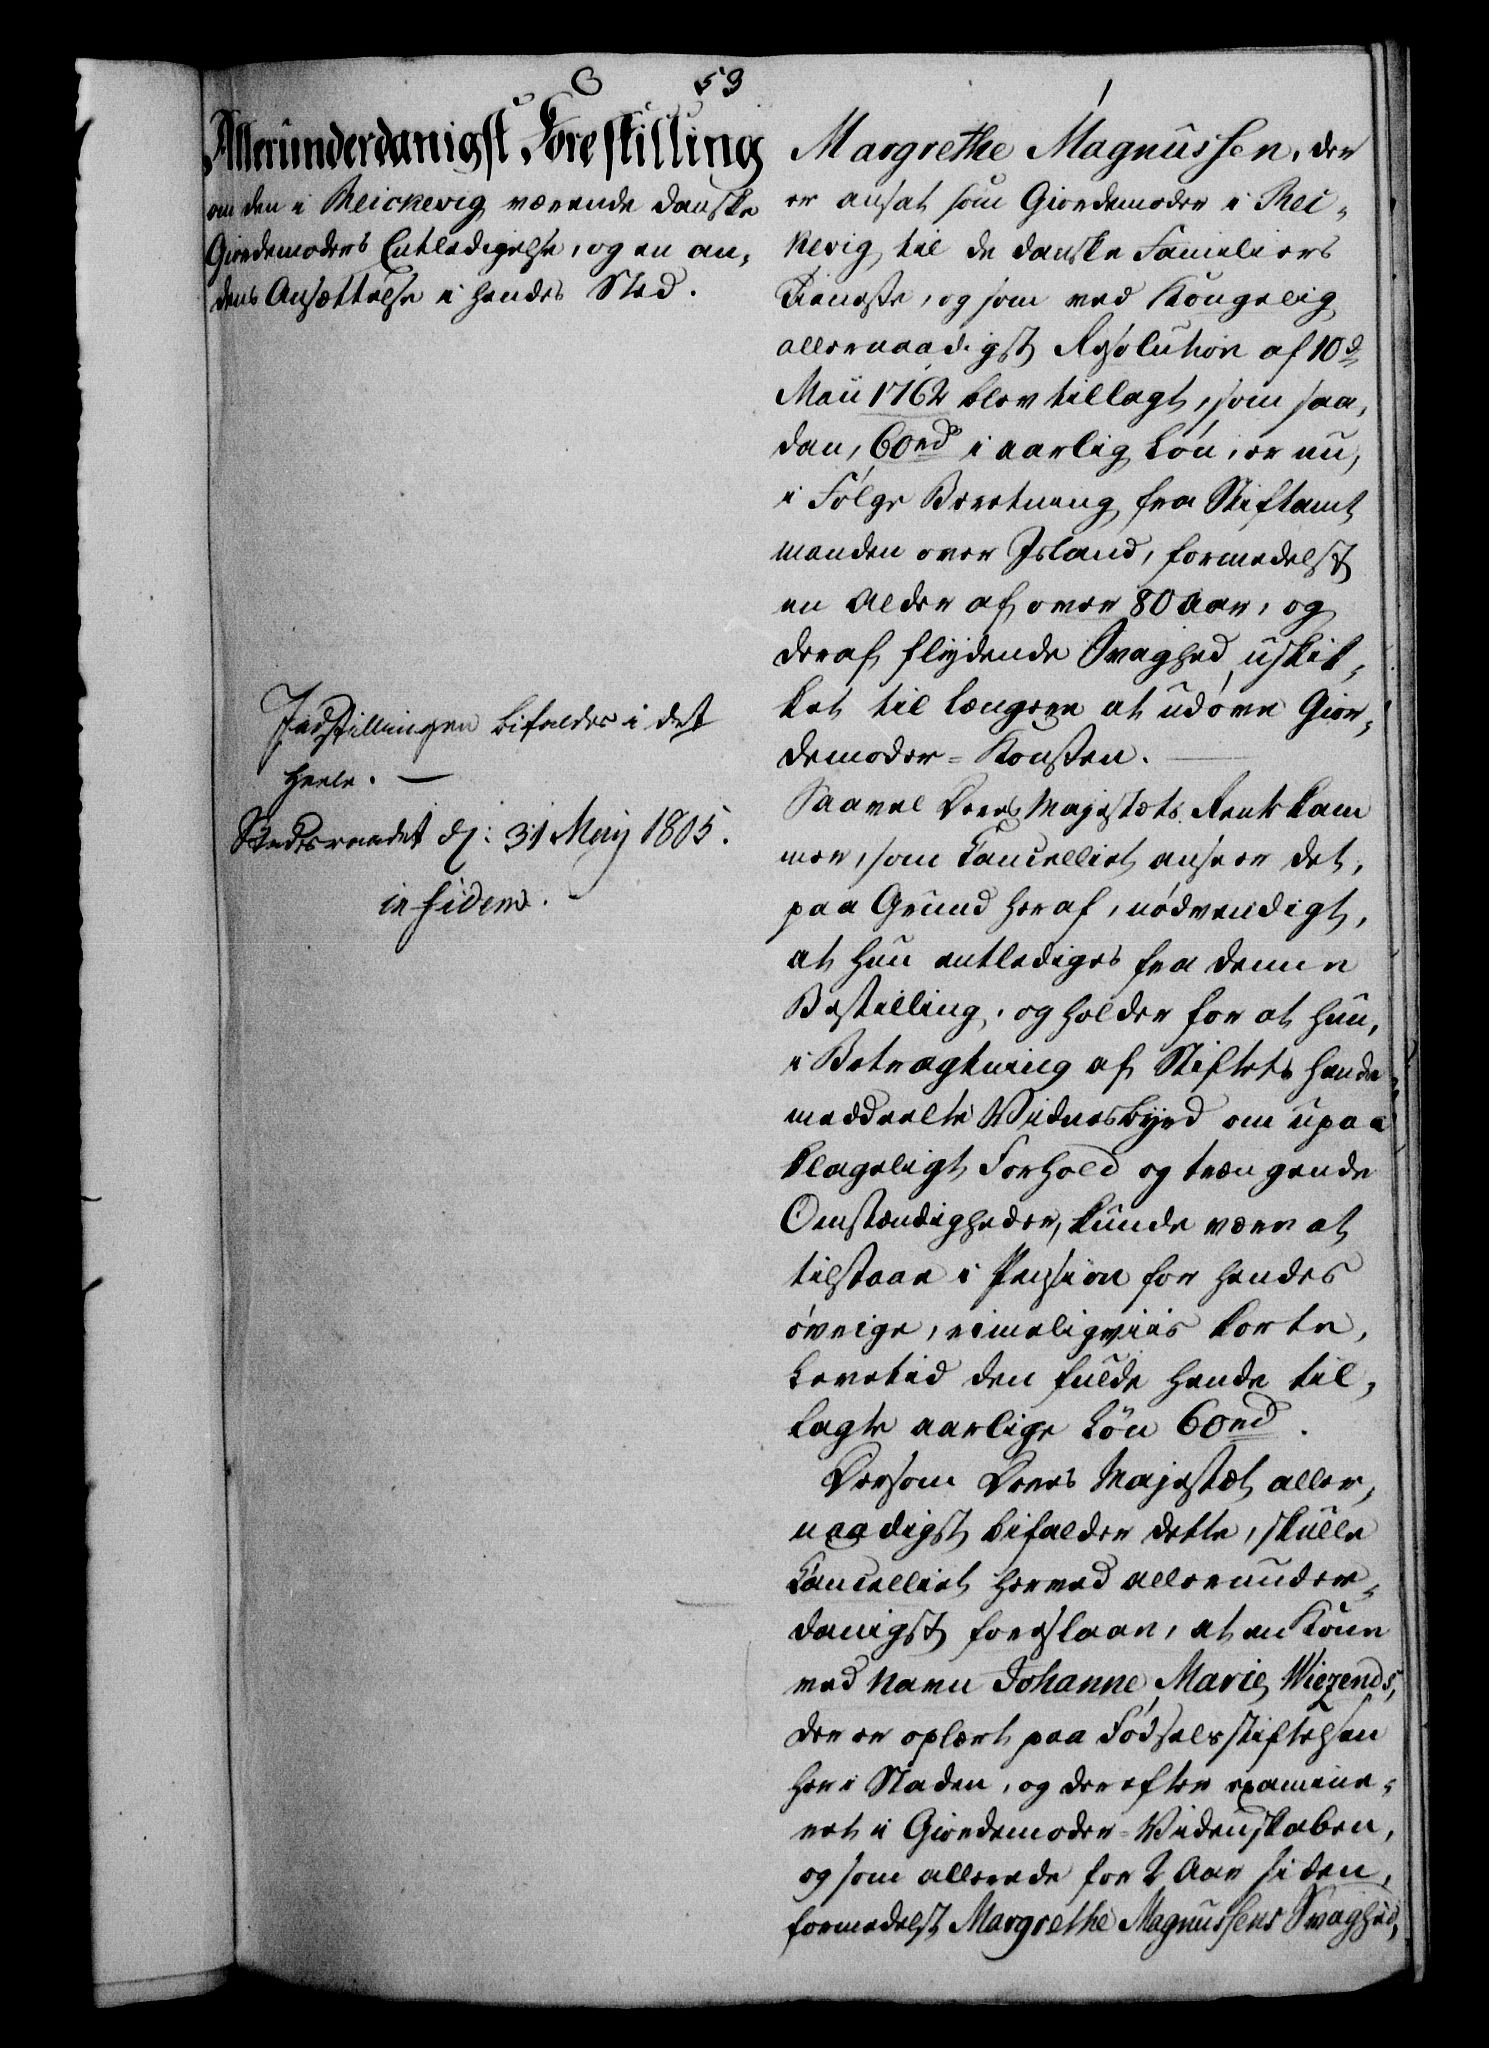 53
Allerunderdanigst Forestilling
om den i Reickevig værende danske
Giordemoders Entledigelse, og en an,
dens Ansættelse i hendes Sted.
Indstillingen bifaldes i det
heele. —
Stadsraadet d: 31 May 1805.
in fidem.
Margrethe Magnussen, der
er ansat som Giordemoder i Rei,
kevig til de danske Familiers
Tieneste, og som ved Kongelig
allernaadigst Resolution af 10d
Maii 1762 blev tillagt, som saa,
dan, 60rd i aarlig Løn, er nu,
i Følge Beretning fra Stiftamt
manden over Island, formedelst
en Alder af over 80 Aar, og
deraf flydende Svaghed, uskik,
ket til længere at udøve Gior,
demoder-Konsten. —
Saavel Deres Majestæts Rentekam
mer, som Cancelliet anseer det,
paa Grund heraf, nødvendigt,
at hun entlediges fra denne
Bestilling, og holder for at hun,
i Betragtning af Stiftets hende
meddeelte Vidnesbyrd om upaa
klageligt Forhold og trængende
Omstændigheder, kunde være at
tilstaae i Pension for hendes
øvrige, rimeligviis korte,
Levetid den fulde hende til,
lagte aarlige Løn 60rd.
Dersom Deres Majestæt aller,
naadigst bifalder dette, skulle
Cancelliet herved allerunder,
danigst foreslaae, at en Kone
ved Navn Johanne Marie Wiezends,
der er oplært paa Fødselsstiftelsen
her i Staden, og derefter examine,
ret i Giordemoder-Videnskaben,
og som allerede for 2 Aar siden,
formedelst Margrethe Magnussens Svaghed,